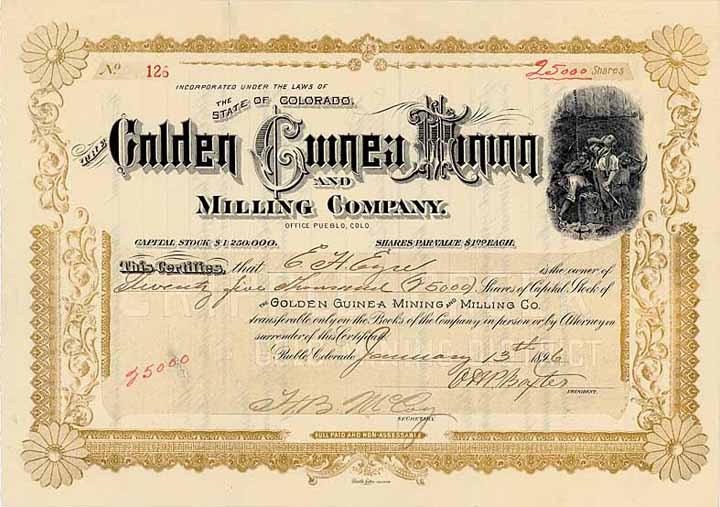 No. 126
25000 Shares
INCORPORATED UNDER THE LAWS OF
THE STATE OF COLORADO.
THE Golden Guinea Mining
AND
MILLING COMPANY.
OFFICE PUEBLO, COLO.
CAPITAL STOCK $1.250.000. SHARES PAR VALUE $1.00 EACH.
This Certifies, that E. H. Eyre is the owner of
Twenty five thousand (25000) Shares of Capital Stock of
THE GOLDEN GUINEA MINING AND MILLING CO.
transferable only on the Books of the Company in person or by Attorney on
surrender of this Certificate.
Pueblo Colorado January 13th 1896
25000
O.H.P. Baxter
PRESIDENT.
McCoy
SECRETARY.
FULL PAID AND NON-ASSESSABLE